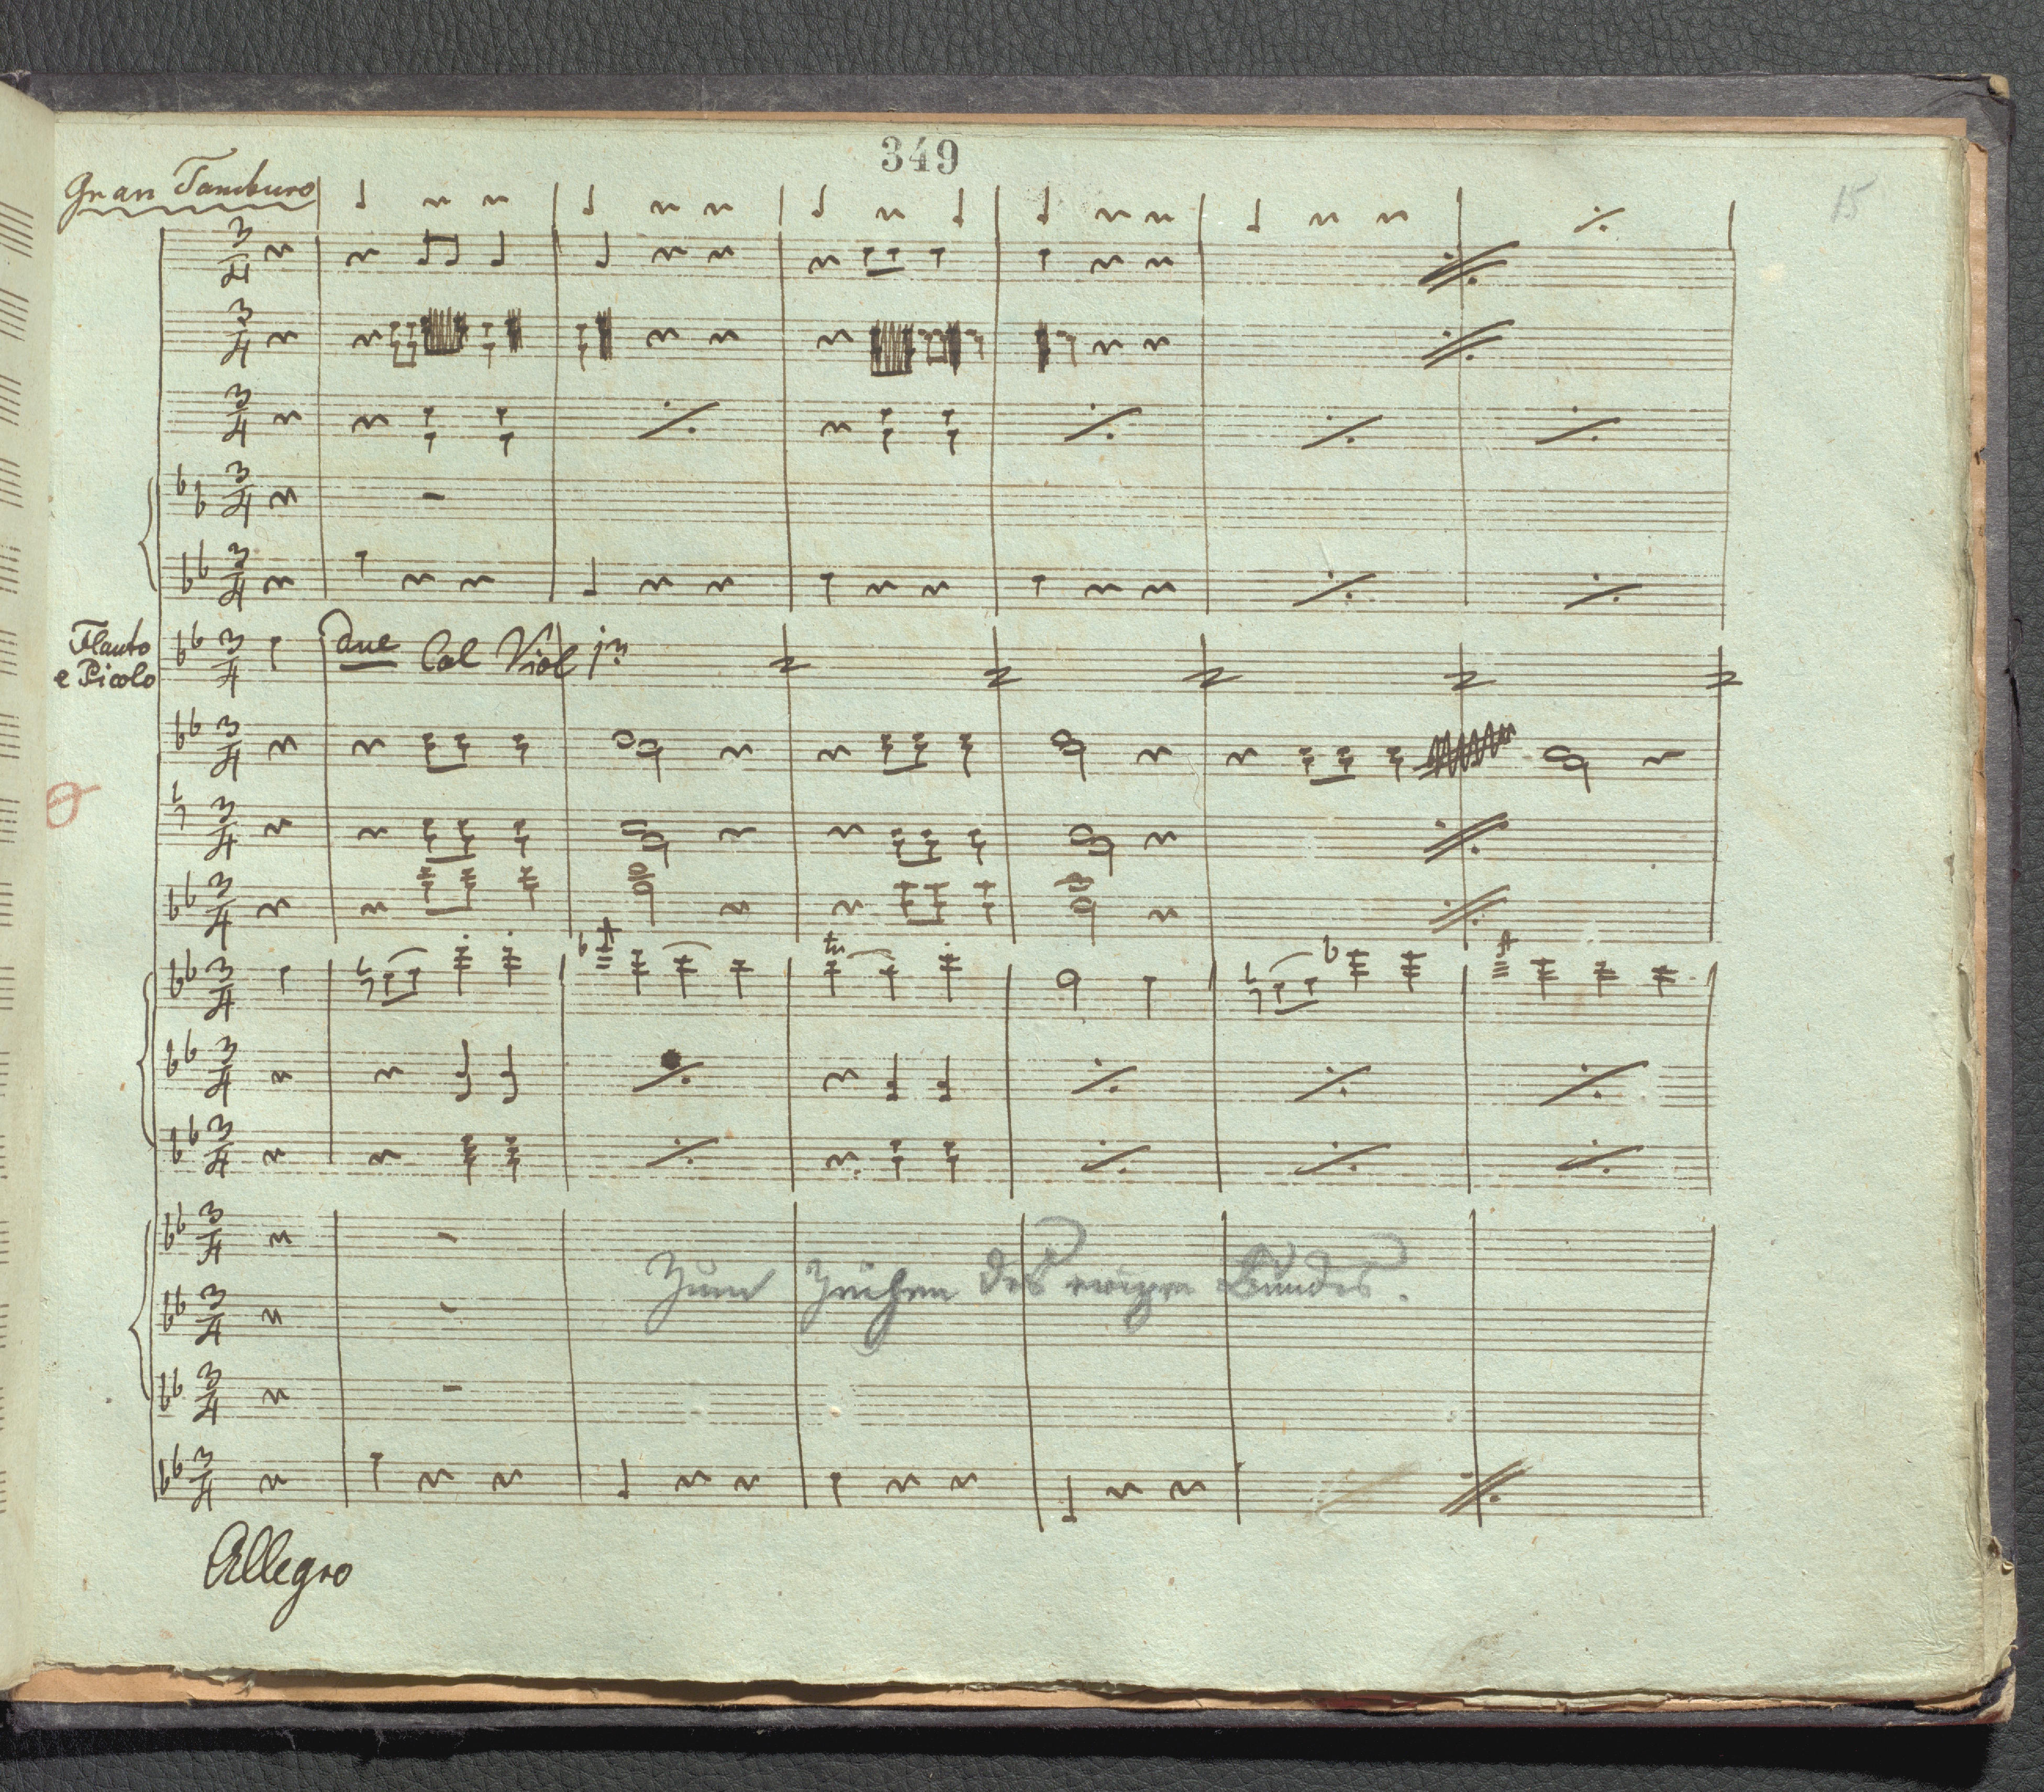 349
15
Gran Tamburo
Flauto
e Picolo
due Col Viol 1mo
tr
Zum Zeichen des ewigen Bundes.
Allegro